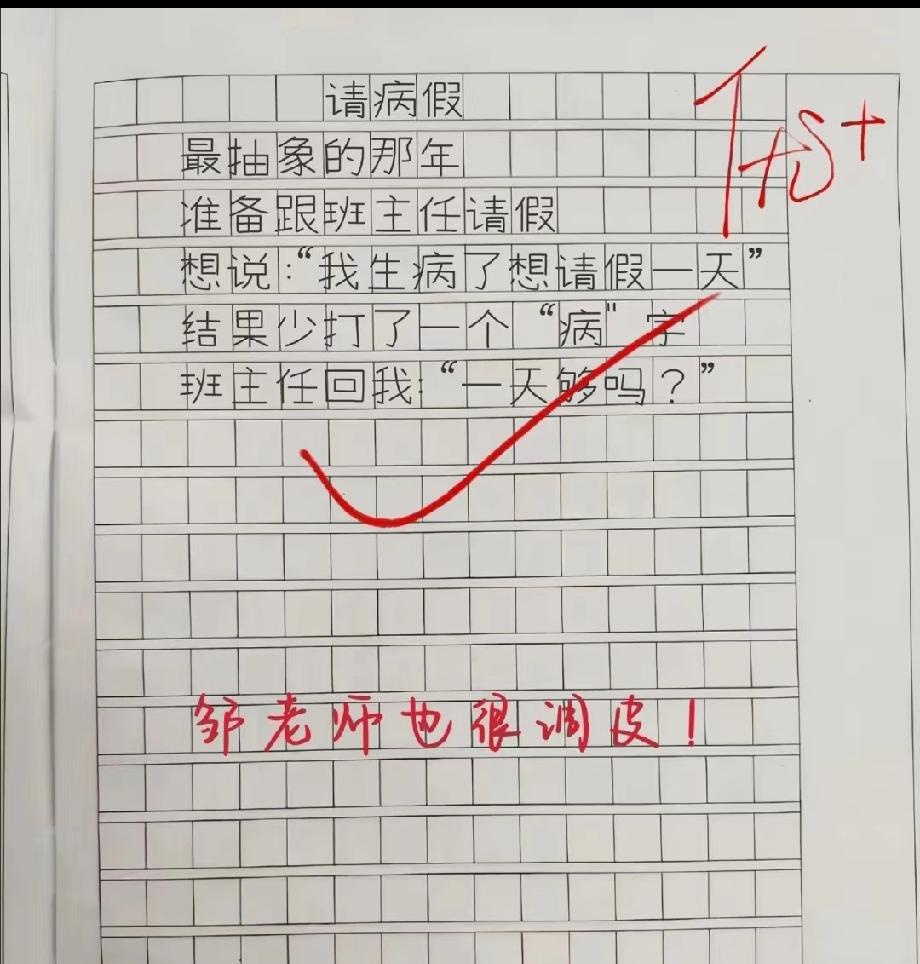 请病假
最抽象的那年
准备跟班主任请假
想说:“我生病了想请假一天”
结果少打了一个“病"字
班主任回我:“一天够吗?”
邹老师也很调皮!